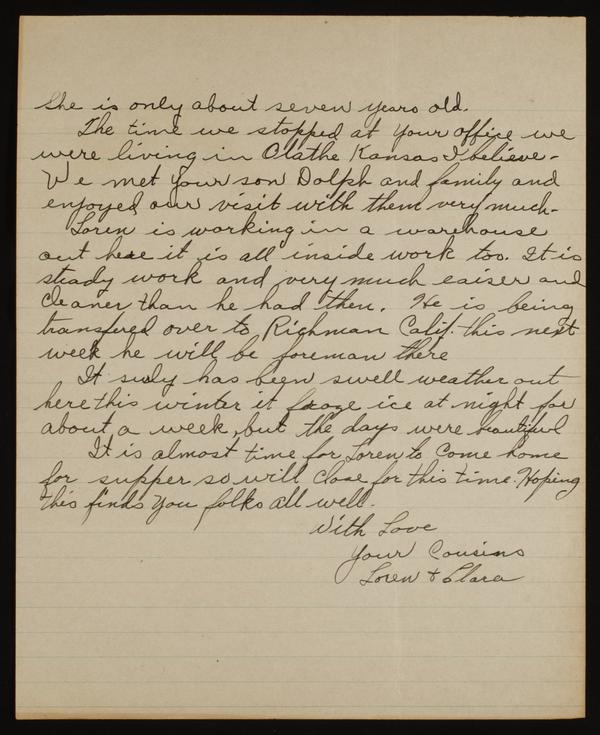 She is only about seven years old.
The time we stopped at your office we
were living in Olathe Kansas I believe-
We met your son Dolph and family and
enjoyed our visit with them very much-
Loren is working in a warehouse
out here it is all inside work too. It is
steady work and very much eaiser and
cleaner than he had then. He is being
transfered over to Richman Calif. this next
week he will be foreman there
It suly has been swell weather out
here this winter it froze ice at night for
about a week, but the days were beautiful
It is almost time for Loren to come home
for supper so will close for this time. Hoping
this finds you folks all well.
With Love
Your Cousins
Loren & Clara